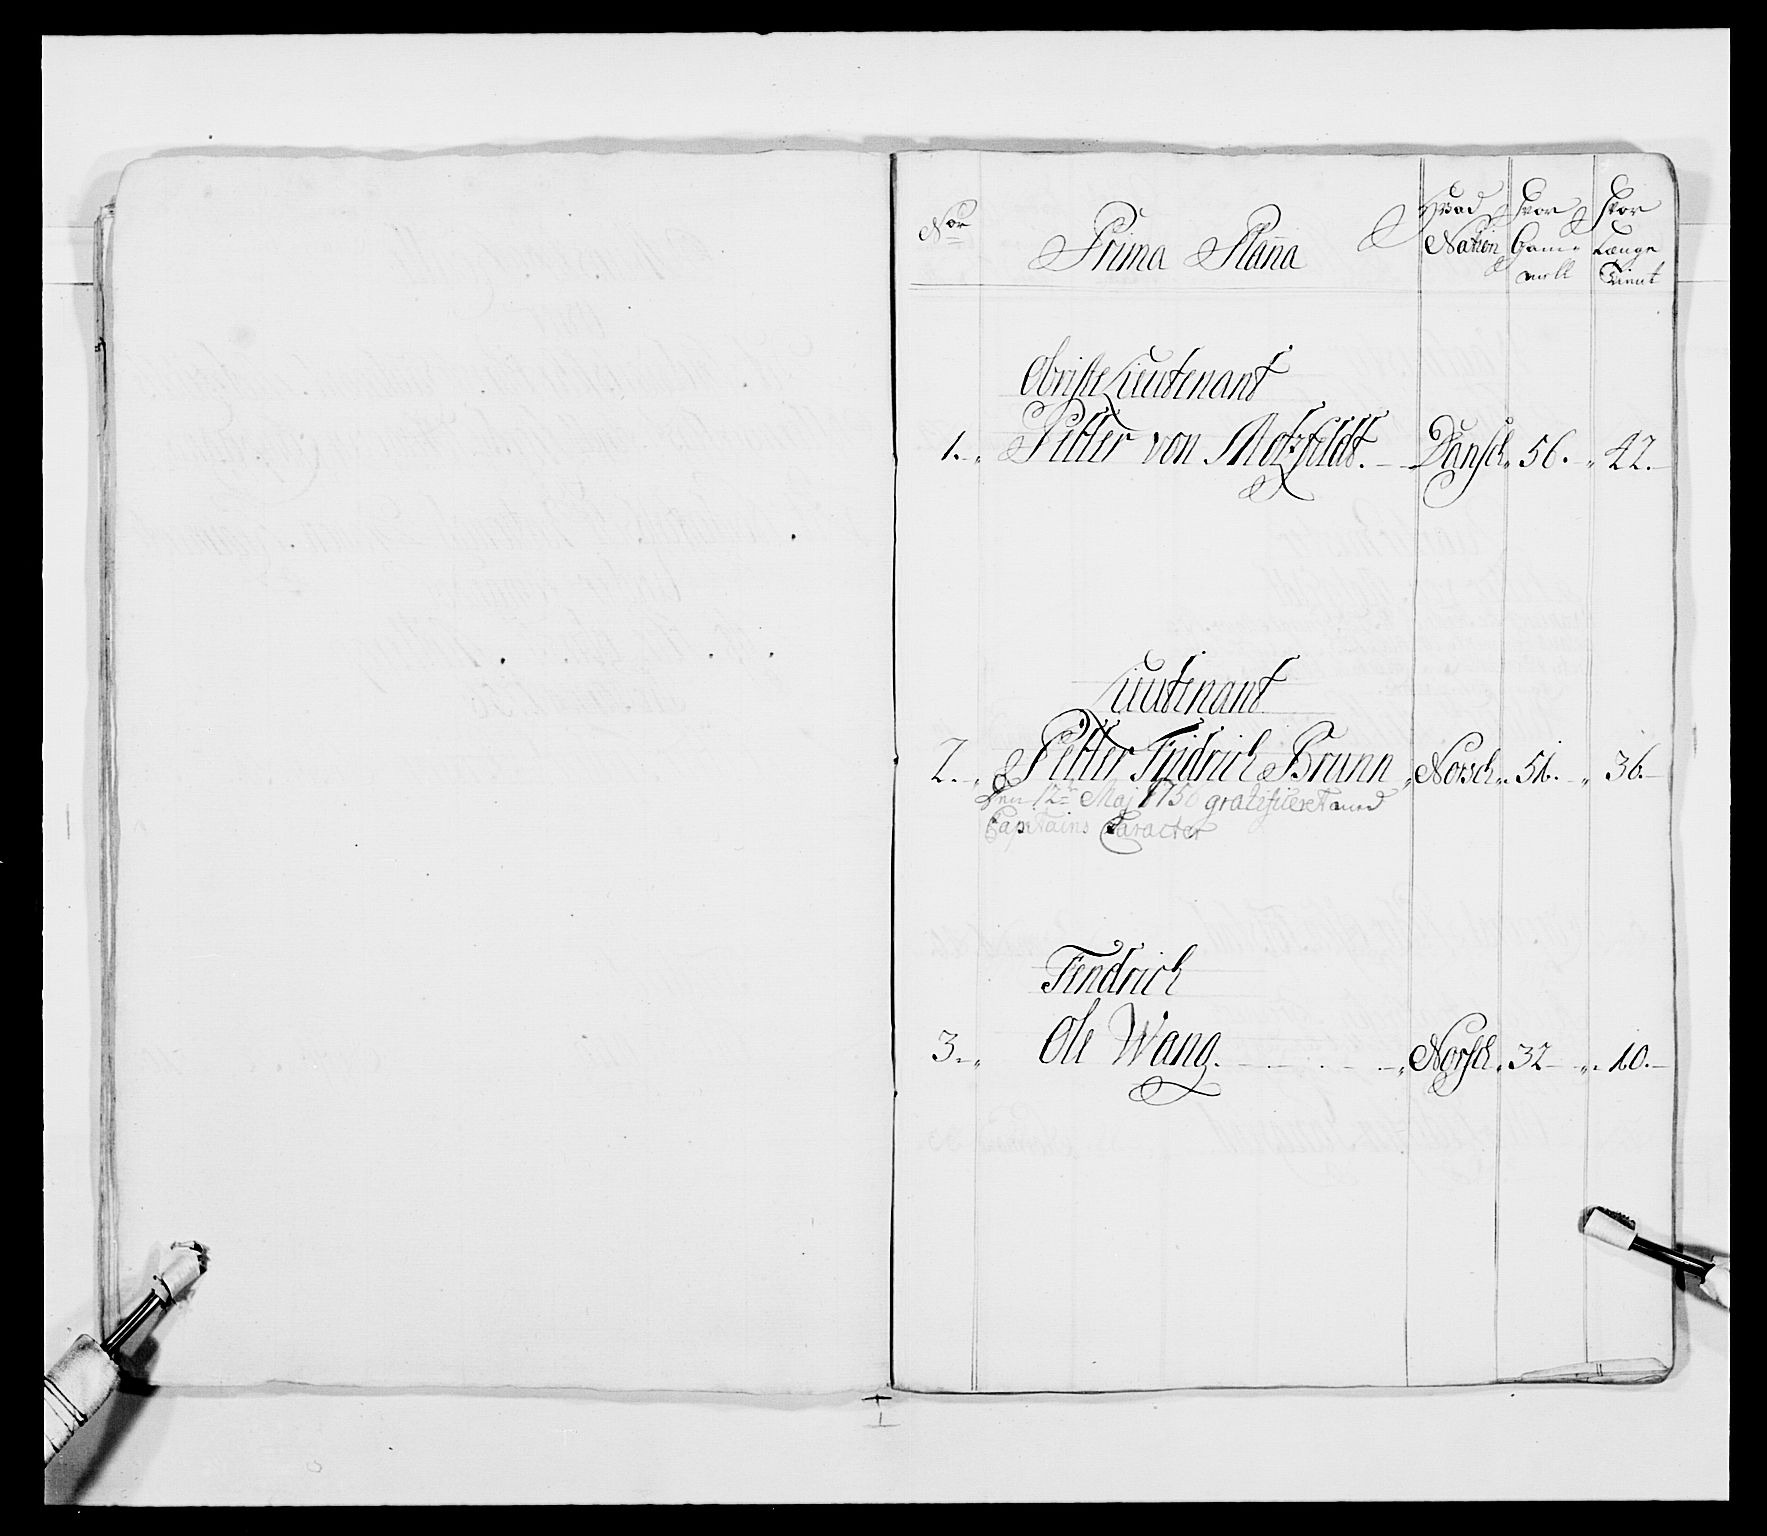 Nor Prima Plana Hvad Nation Hvor Gammell Hvor Længe Tient
Obriste Lieutenant
1. Petter von Motzfeldt. Dansch 56. 42.
Lieutenant
2. Petter Fridrich Brunn Norsch 51. 36.
Den 12te Maj 1756 gratificeret med
Capitains Caracter
Fendrich
3. Ole Wang. Norsch 32 10.